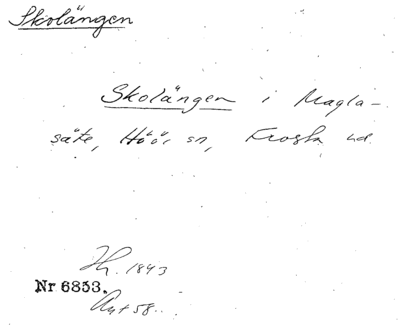 Skolängen
Skolängen i Magla-
säte, Höör sn, Frosta hd.
Hh. 1843
Nr 6853.
Avt 58.